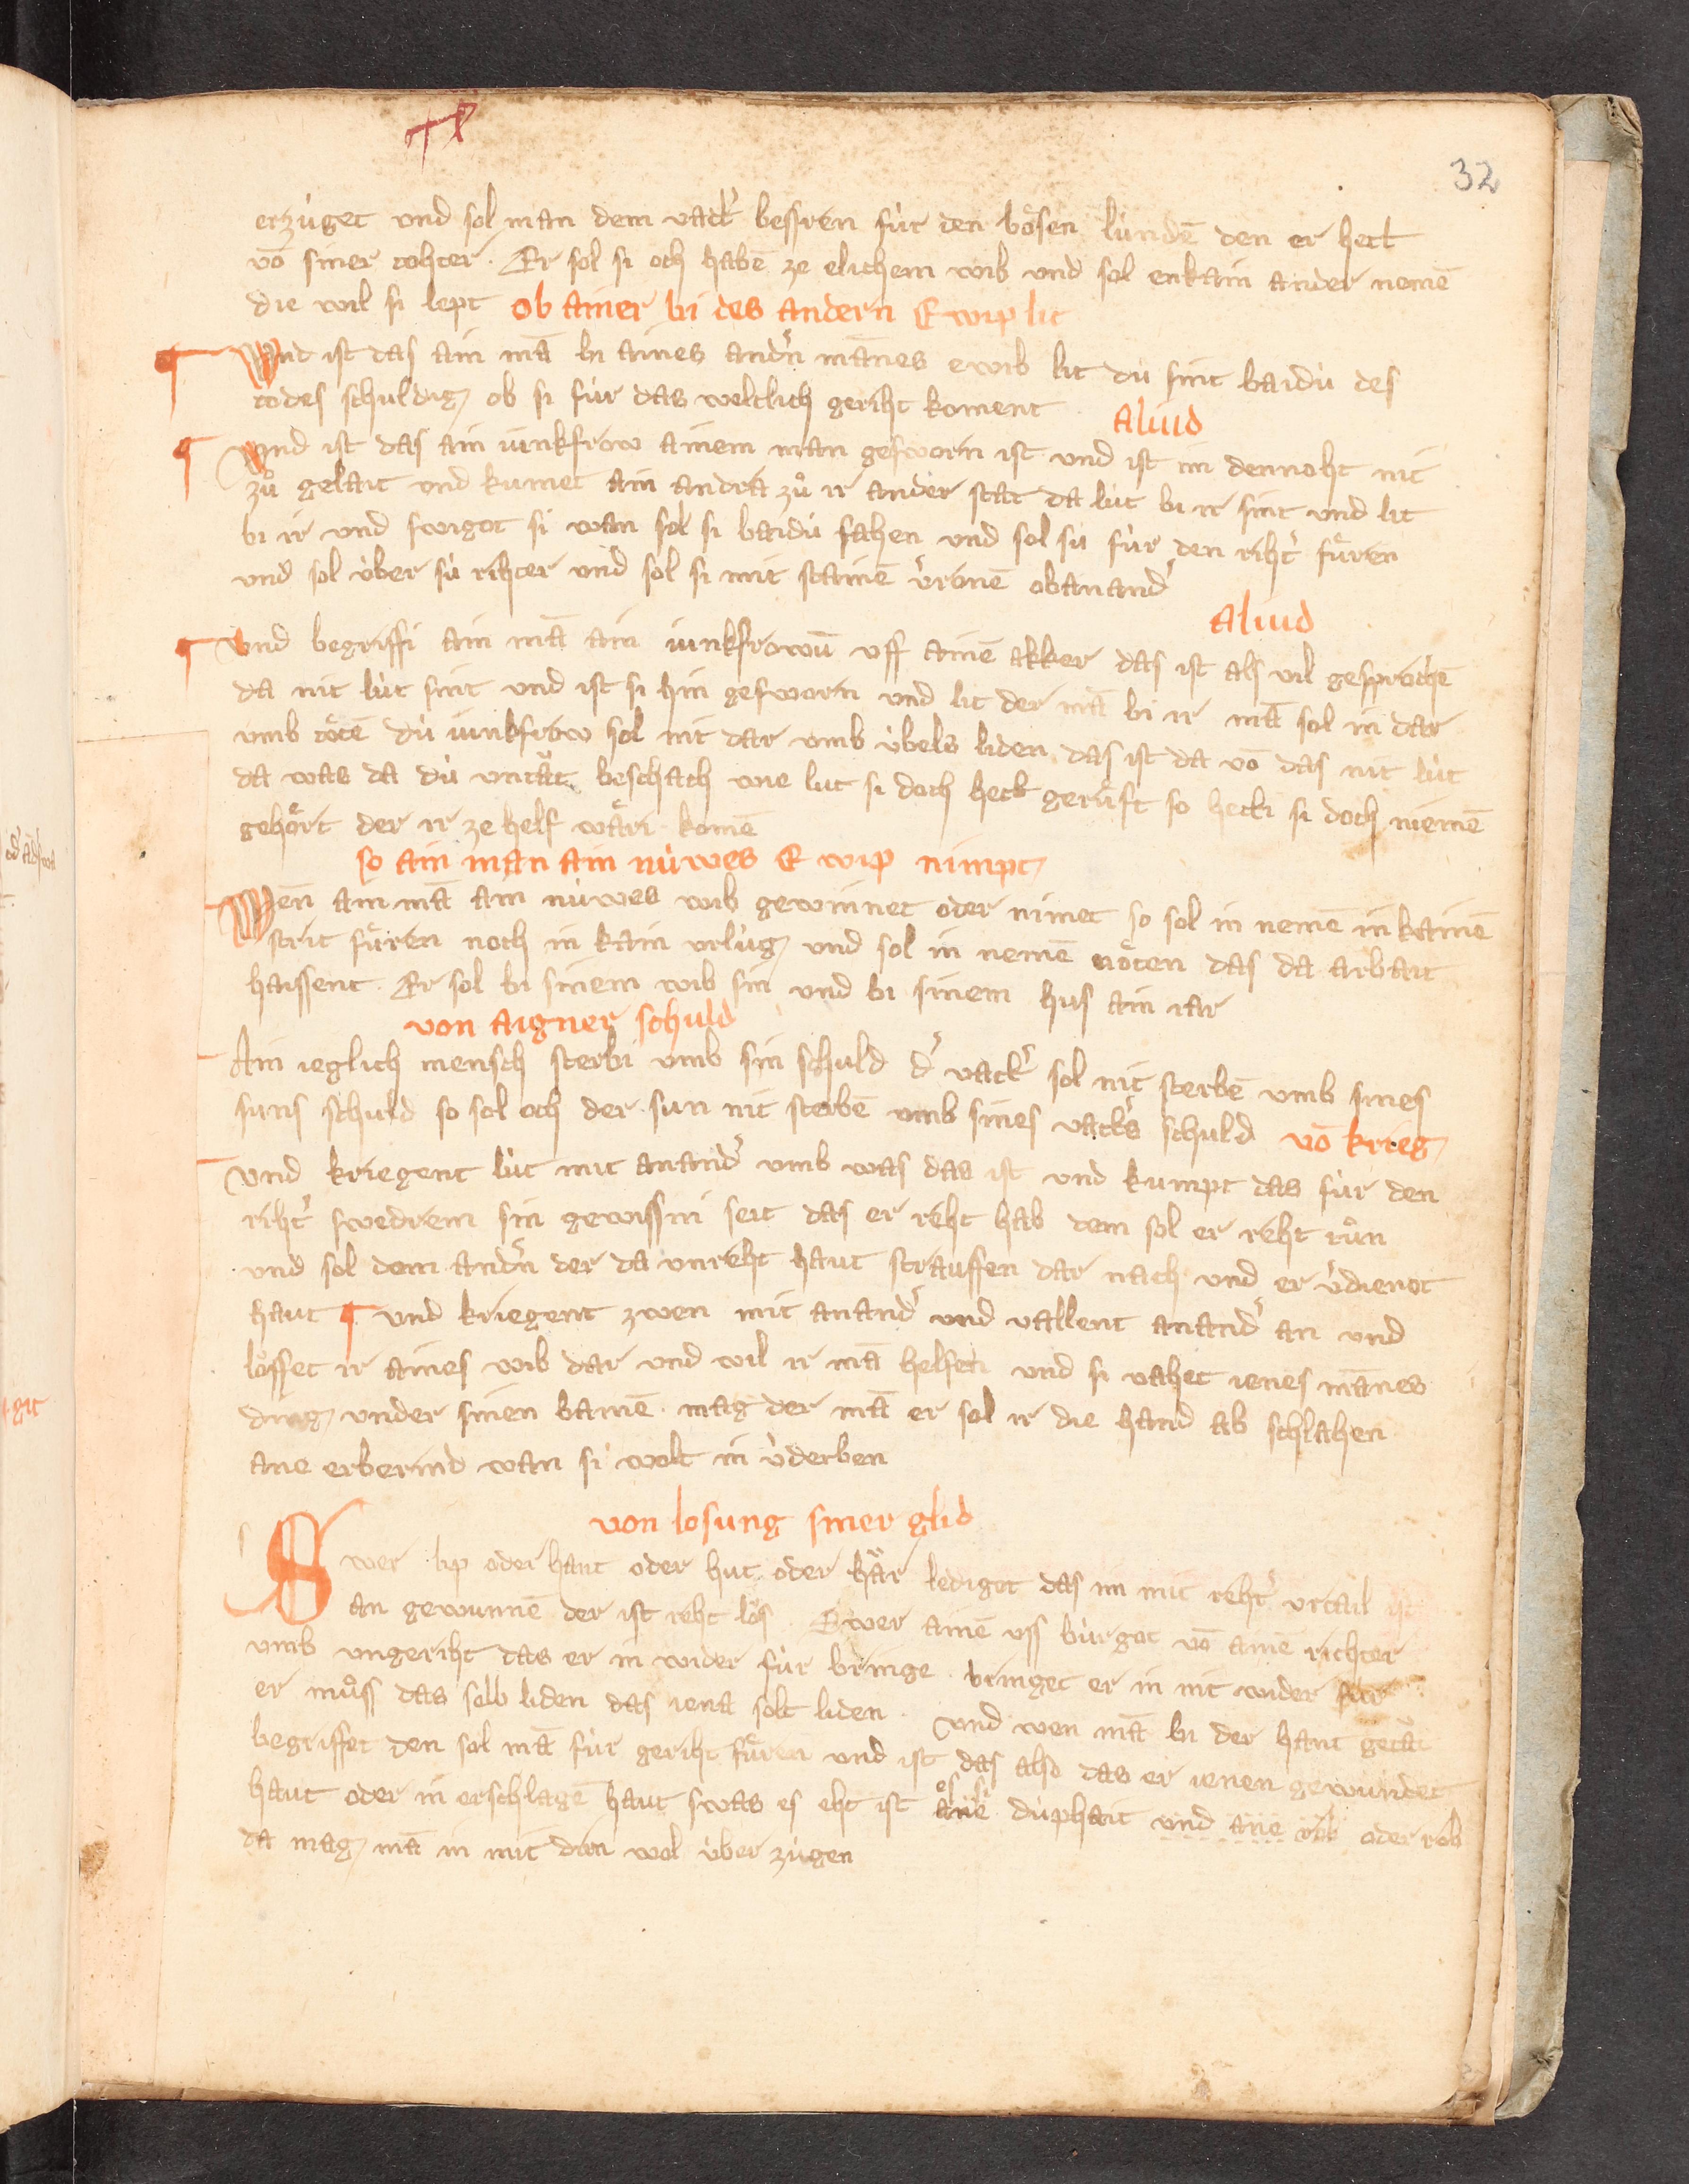 32
erzúget und sol man dem vattˀ bessren fúr den bôsen lúndē den er hett
võ siner tohter. Er sol si och habē ze elichem wib und sol enkain ander nemē
die wil si lept ob ainer bi des andern E wip lit
¶ Und ist das ain mā bi aines andˀn mānes ewib lit dú sint baidú des
todes schuldig ob si fúr das weltlich geriht koment
Aliud
¶ Und ist das ain iunkfrow ainem man gesworn ist und ist im dennoht nit
zů gelait und kumet ain andrä zů ir ander stat da lút bi ir sint und lit
bi ir und swiget si man sol si baidú fahen und sol sú fúr den rihtˀ fůren
und sol úber sú rihter und sol si mit stainē vˀronē obanandˀ
Aliud
¶ Und begriffi ain mā ain iunkfrowū uff ainē akker das ist als vil gesprochē
da nit lút sint und ist si hin gesworn und lit der mā bi ir mā sol in dar
umb tôtē dú iunkfrow sol nit dar umb úbels liden das ist da võ das nit lút
da was da dú untät beschach wie lut si doch hett gerůft so hetti si doch niemē
gehôrt der ir ze helf wäri komē
so ain man ain núwes E wip nimpt
Wēn ain mā ain núwes wib gewinnet oder nimet so sol in nemē in kainē
strit fůren noch in kain urlúg und sol in nemē nôten das da arbait
haissent. Er sol bi sinem wib sin und bi sinem hus ain iar
von aigner schuld
Ain ieglich mensch sterbi umb sin schuld dˀ vattˀ sol nit sterbē umb sines
suns schuld so sol och der sun nit sterbē umb sines vattˀs schuld võ krieg
Und kriegent lút mit anandˀ umb was das ist und kumpt das fúr den
rihtˀ swedrem sin gewissni seit das er reht hab dem sol er reht tůn
und sol dem andˀn der da unreht haut strauffen dar nach und er vˀdienot
haut ¶ und kriegent zwen mit anandˀ und vallent anandˀ an und
lôffet ir aines wib dar und wil ir mā helfen und si vahet ienes mānes
ding under sinen bainē. mag der mā er sol ir die hand ab schlahen
ane erbermd wan si wolt in vˀderben
von losung siner glid
Swer lip oder hant oder hut oder här lediget das im mit rehtˀ urtail ist
an gewunnē der ist reht lôs. Swer ainē uss búrget võ ainē richter
umb ungeriht das er in wider fúr bringe. bringet er in nit wider fúr
er můss das selb liden das ienä solt liden. Und wen mā bi der hant getät
begriffet den sol mā fúr geriht fůren und ist das also das er ienen gewundet
haut oder in erschlagē haut swas es eht ist es si ane dúphait und ane rôb oder rôb
da mag mā in mit drin wol úber zúgen